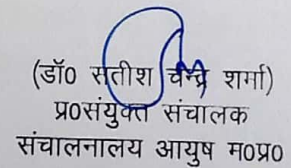 (डॉ0 सतीश चन्द्र शर्मा)
प्र0संयुक्त संचालक
संचालनालय आयुष म0प्र0